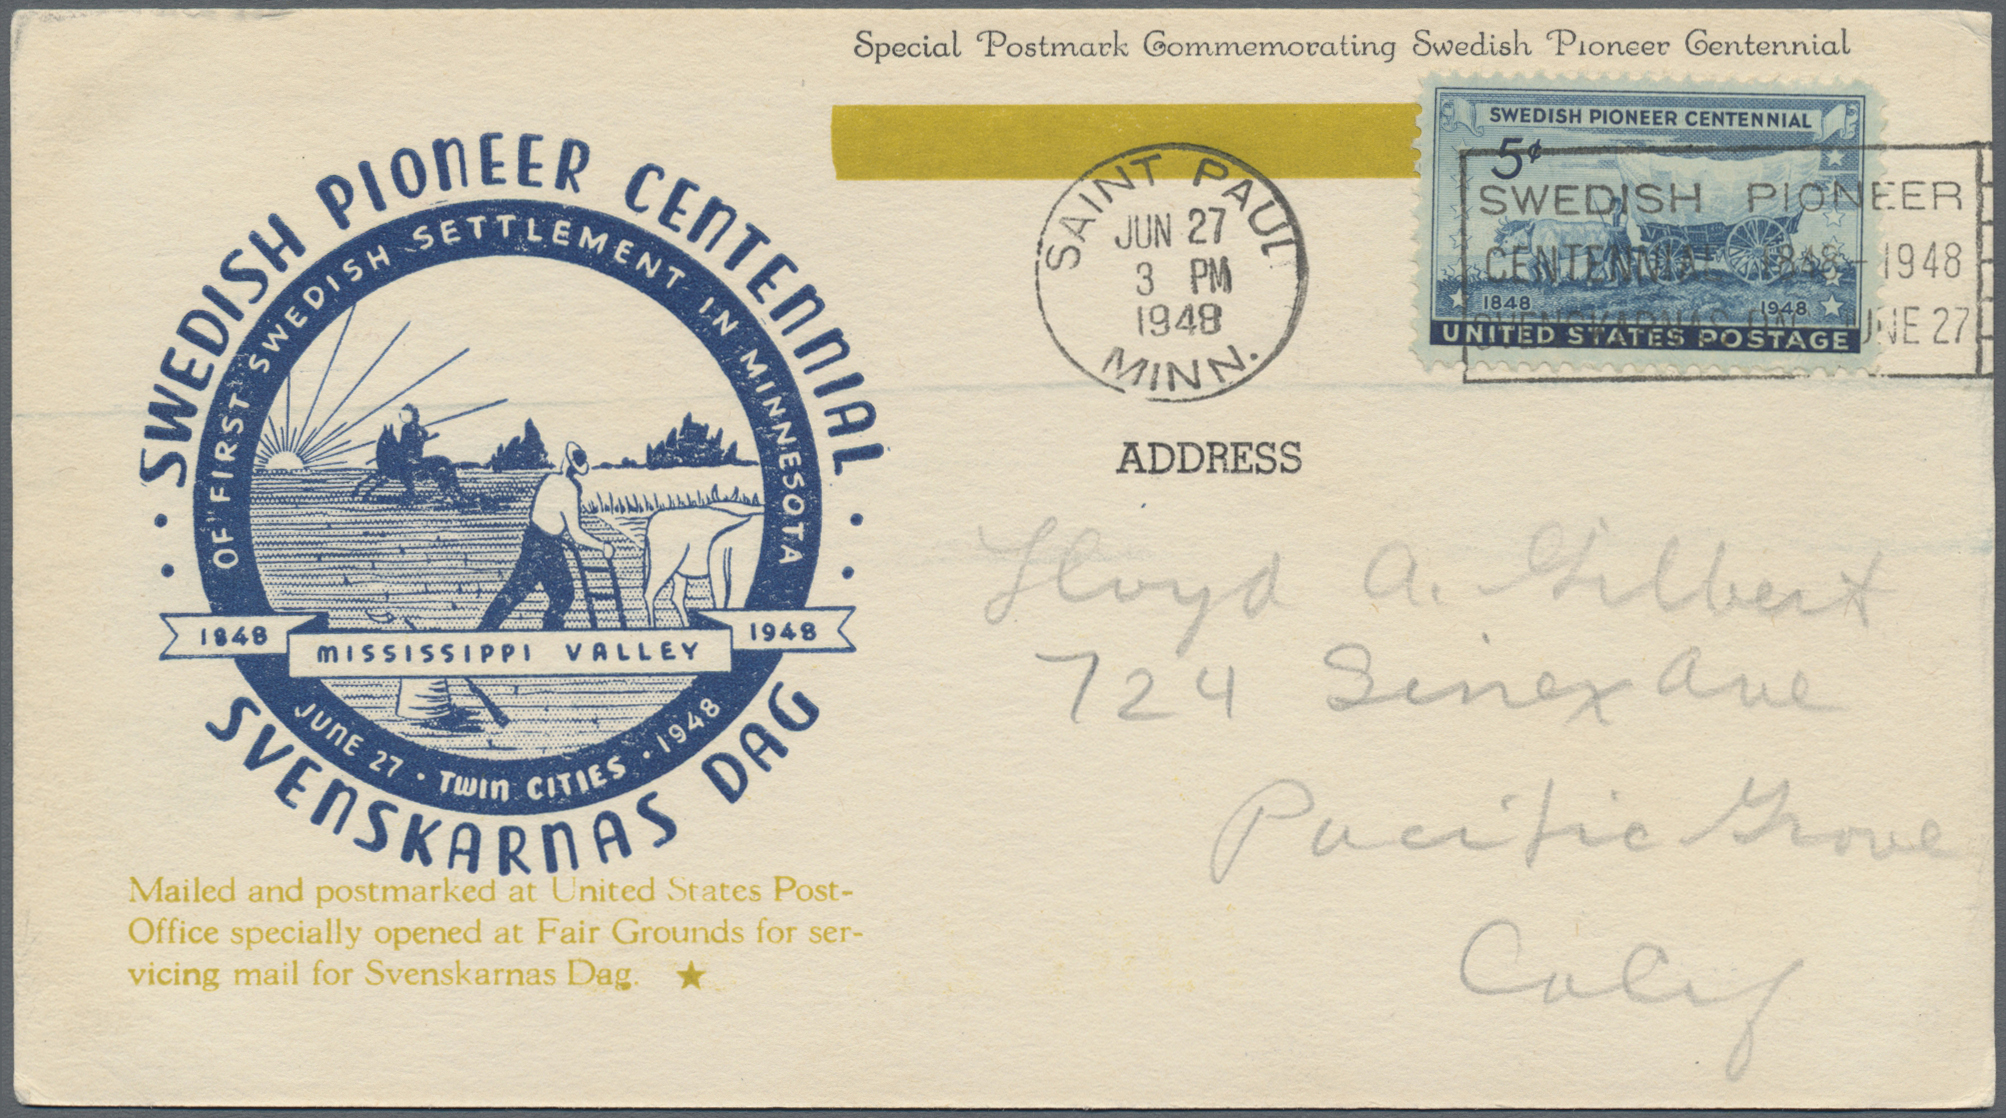 Special Postmark Commemorating Swedish Pioneer Centennial
SWEDISH PIONEER CENTENNIAL
5¢
1848 1948
UNITED STATES POSTAGE
SAINT PAUL
JUN 27
3 PM
1948
MINN.
SWEDISH PIONEER
CENTENNIAL 1848-1948
SVENSKARNAS DAG JUNE 27
SWEDISH PIONEER CENTENNIAL
OF FIRST SWEDISH SETTLEMENT IN MINNESOTA
1848 MISSISSIPPI VALLEY 1948
JUNE 27 • TWIN CITIES • 1948
SVENSKARNAS DAG
Mailed and postmarked at United States Post-
Office specially opened at Fair Grounds for ser-
vicing mail for Svenskarnas Dag. ★
ADDRESS
Lloyd A. Gilbert
724 Sinex Ave
Pacific Grove
Calif